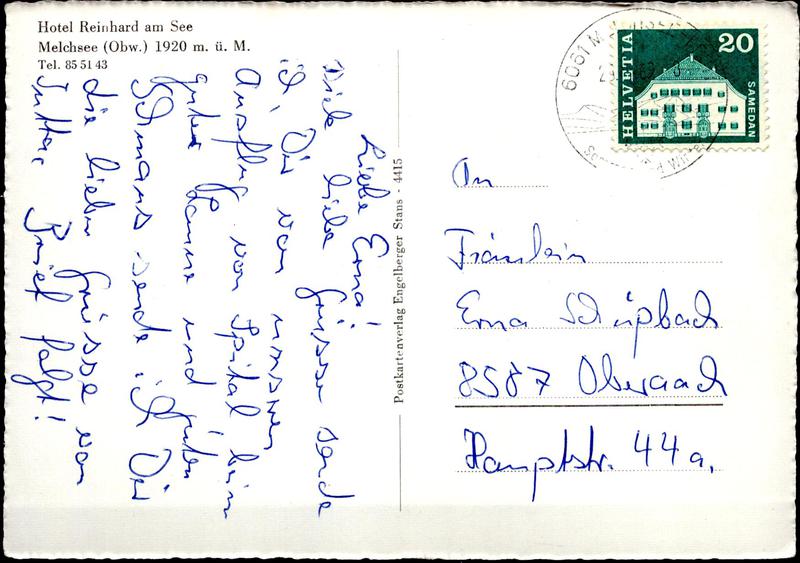 Hotel Reinhard am See
Melchsee (Obw.) 1920 m. ü. M.
Tel. 85 51 43
Liebe Erna!
Viele liebe Grüsse sende
ich Dir von unserem
Ausflug von Spital beim
guter Laune und guten
Schmaus sende ich Dir
die lieben Grüsse von
Jutta. Brief folgt!
Postkartenverlag Engelberger Stans - 4415
6061 M
HELVETIA
20
SAMEDAN
An
Fräulein
Erna Schüpbach
8587 Oberaach
Hauptstr. 44a.